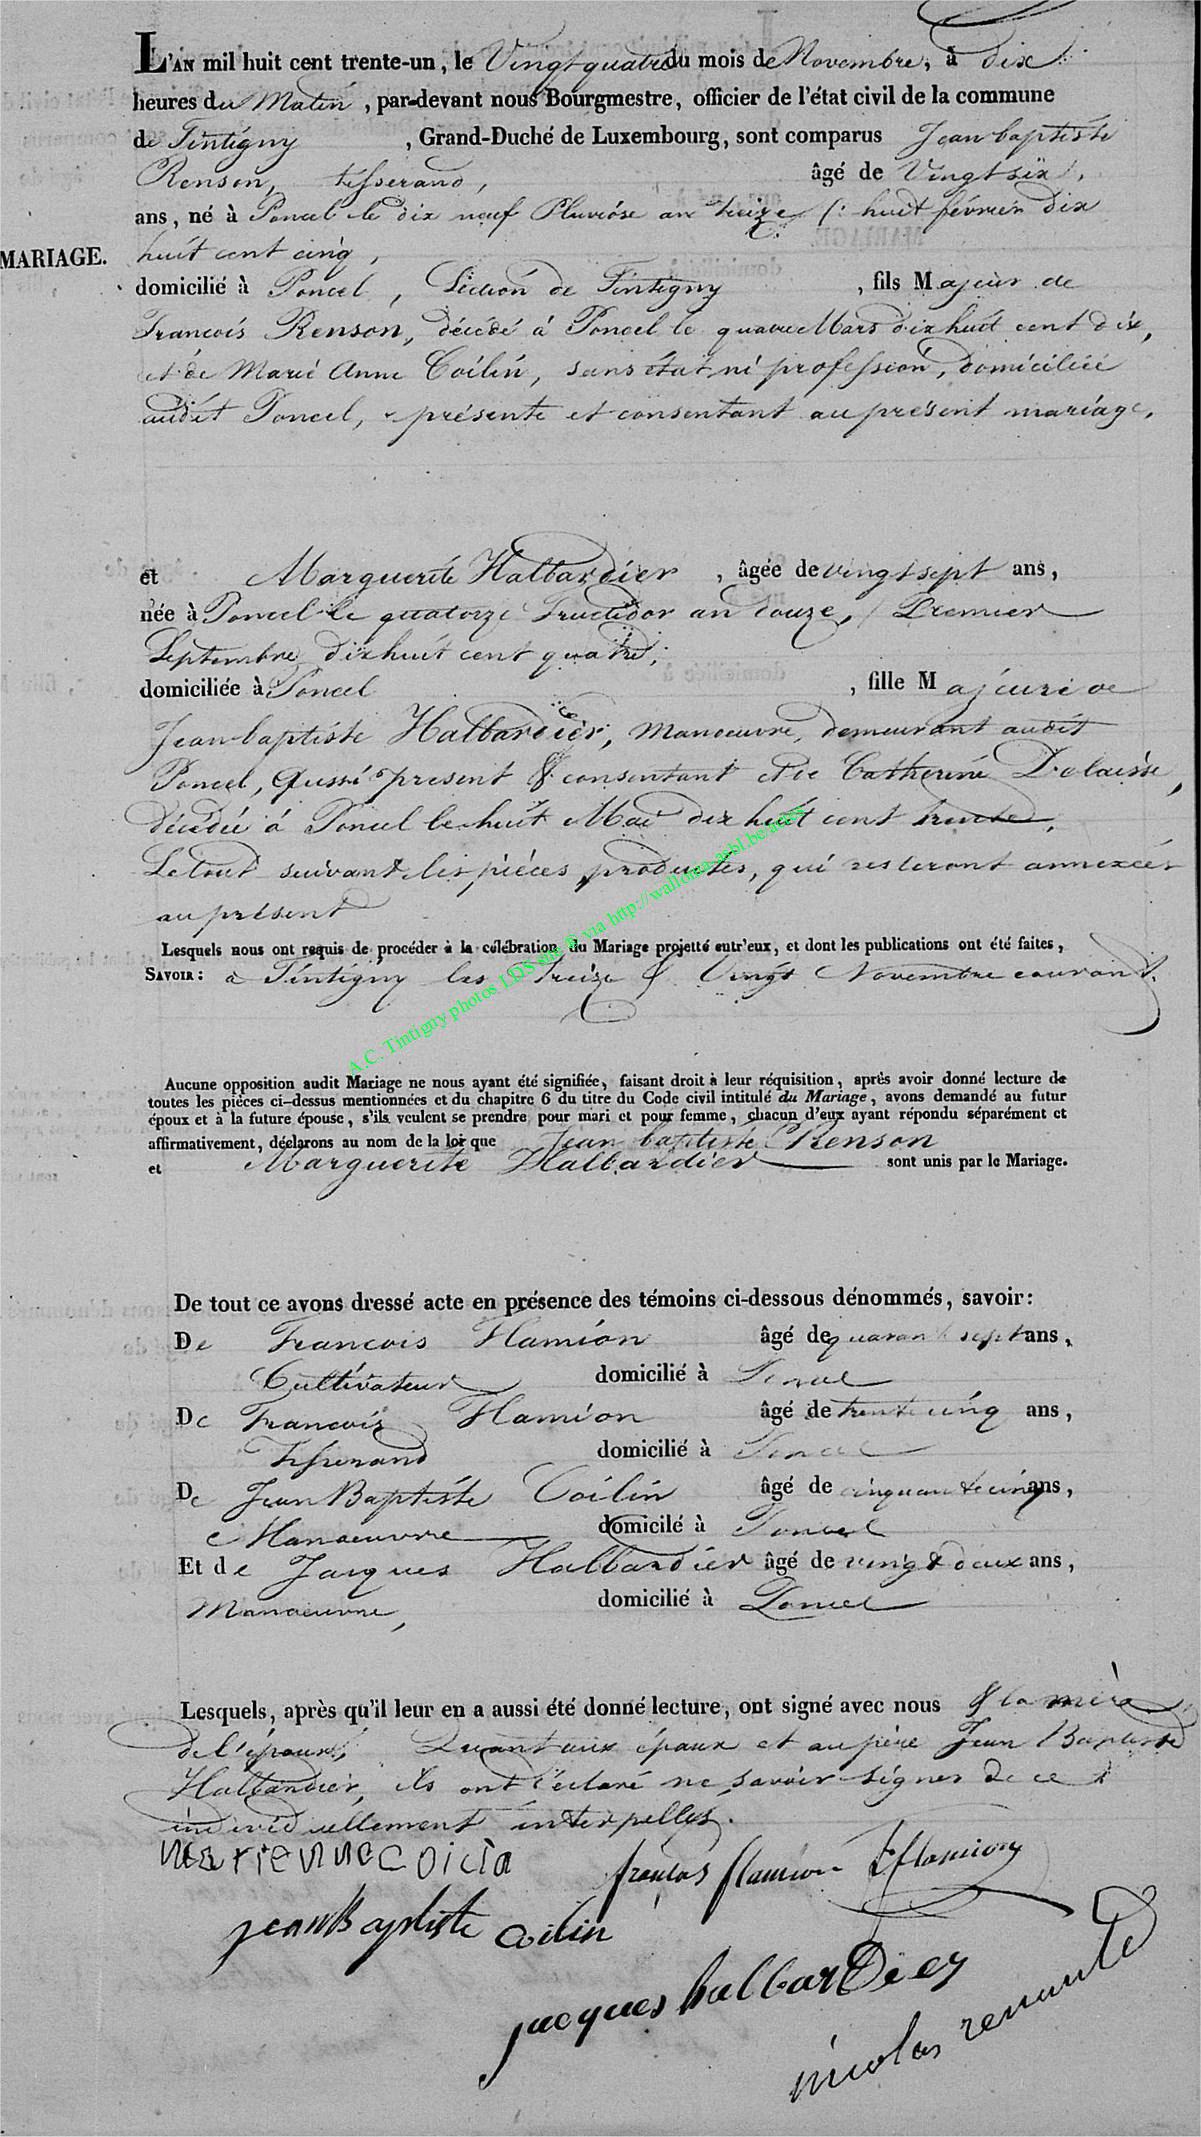 L'AN mil huit cent trente-un, le Vingtquatre du mois de Novembre, à dix
heures du Matin, par-devant nous Bourgmestre, officier de l'état civil de la commune
de Tintigny, Grand-Duché de Luxembourg, sont comparus Jean baptiste
Renson, tisserand, âgé de Vingtsix,
ans, né à Poncel le dix neuf Pluviôse an treize (: huit février dix
huit cent cinq,
MARIAGE.
domicilié à Poncel, Section de Tintigny, fils Majeur de
Francois Renson, décédé à Poncel le quatre Mars dixhuit cent dix,
et de Marie Anne Coilin, sans état ni profession, domiciliée
audit Poncel, présente et consentant au présent mariage,
et Marguerite Halbardier, âgée de vingt sept ans,
née à Poncel le quatorze Fructidor an douze, / Premier
Septembre dixhuit cent quatre,
domiciliée à Poncel, fille Majeure de
Jean-baptiste Halbardier, manoeuvre, demeurant audit
Poncel, Aussi présent & consentant et de Catherine Delaisse,
décédée à Poncel le huit Mai dix huit cent trente,
Le tout suivant les pièces produites, qui resteront annexées
au présent
Lesquels nous ont requis de procéder à la célébration du Mariage projetté entr'eux, et dont les publications ont été faites,
SAVOIR: à Tintigny les Treize & Vingt Novembre courant.
A.C. Tintigny photos LDS sur © via http://wallonia-asbl.be/actes
Aucune opposition audit Mariage ne nous ayant été signifiée, faisant droit à leur réquisition, après avoir donné lecture de
toutes les pièces ci-dessus mentionnées et du chapitre 6 du titre du Code civil intitulé du Mariage, avons demandé au futur
époux et à la future épouse, s'ils veulent se prendre pour mari et pour femme, chacun d'eux ayant répondu séparément et
affirmativement, déclarons au nom de la loi que Jean baptiste Renson
et Marguerite Halbardier sont unis par le Mariage.
De tout ce avons dressé acte en présence des témoins ci-dessous dénommés, savoir:
De Francois Flamion âgé de quarante sept ans,
Cultivateur domicilié à Poncel
De Francois Flamion âgé de trente cinq ans,
Tisserand domicilié à Poncel
De Jean Baptiste Coilin âgé de cinquante cinq ans,
Manoeuvre domicilé à Poncel
Et de Jacques Halbardier âgé de vingt deux ans,
Manoeuvre, domicilié à Poncel
Lesquels, après qu'il leur en a aussi été donné lecture, ont signé avec nous & la mère
de l'époux, Quant aux époux et au père Jean Baptiste
Halbardier, ils ont déclaré ne savoir signer de ce
individuellement interpellés.
marienne coilin
francois flamion F flamion
jean Baptiste coilin
jacques halbardier
nicolas renauld